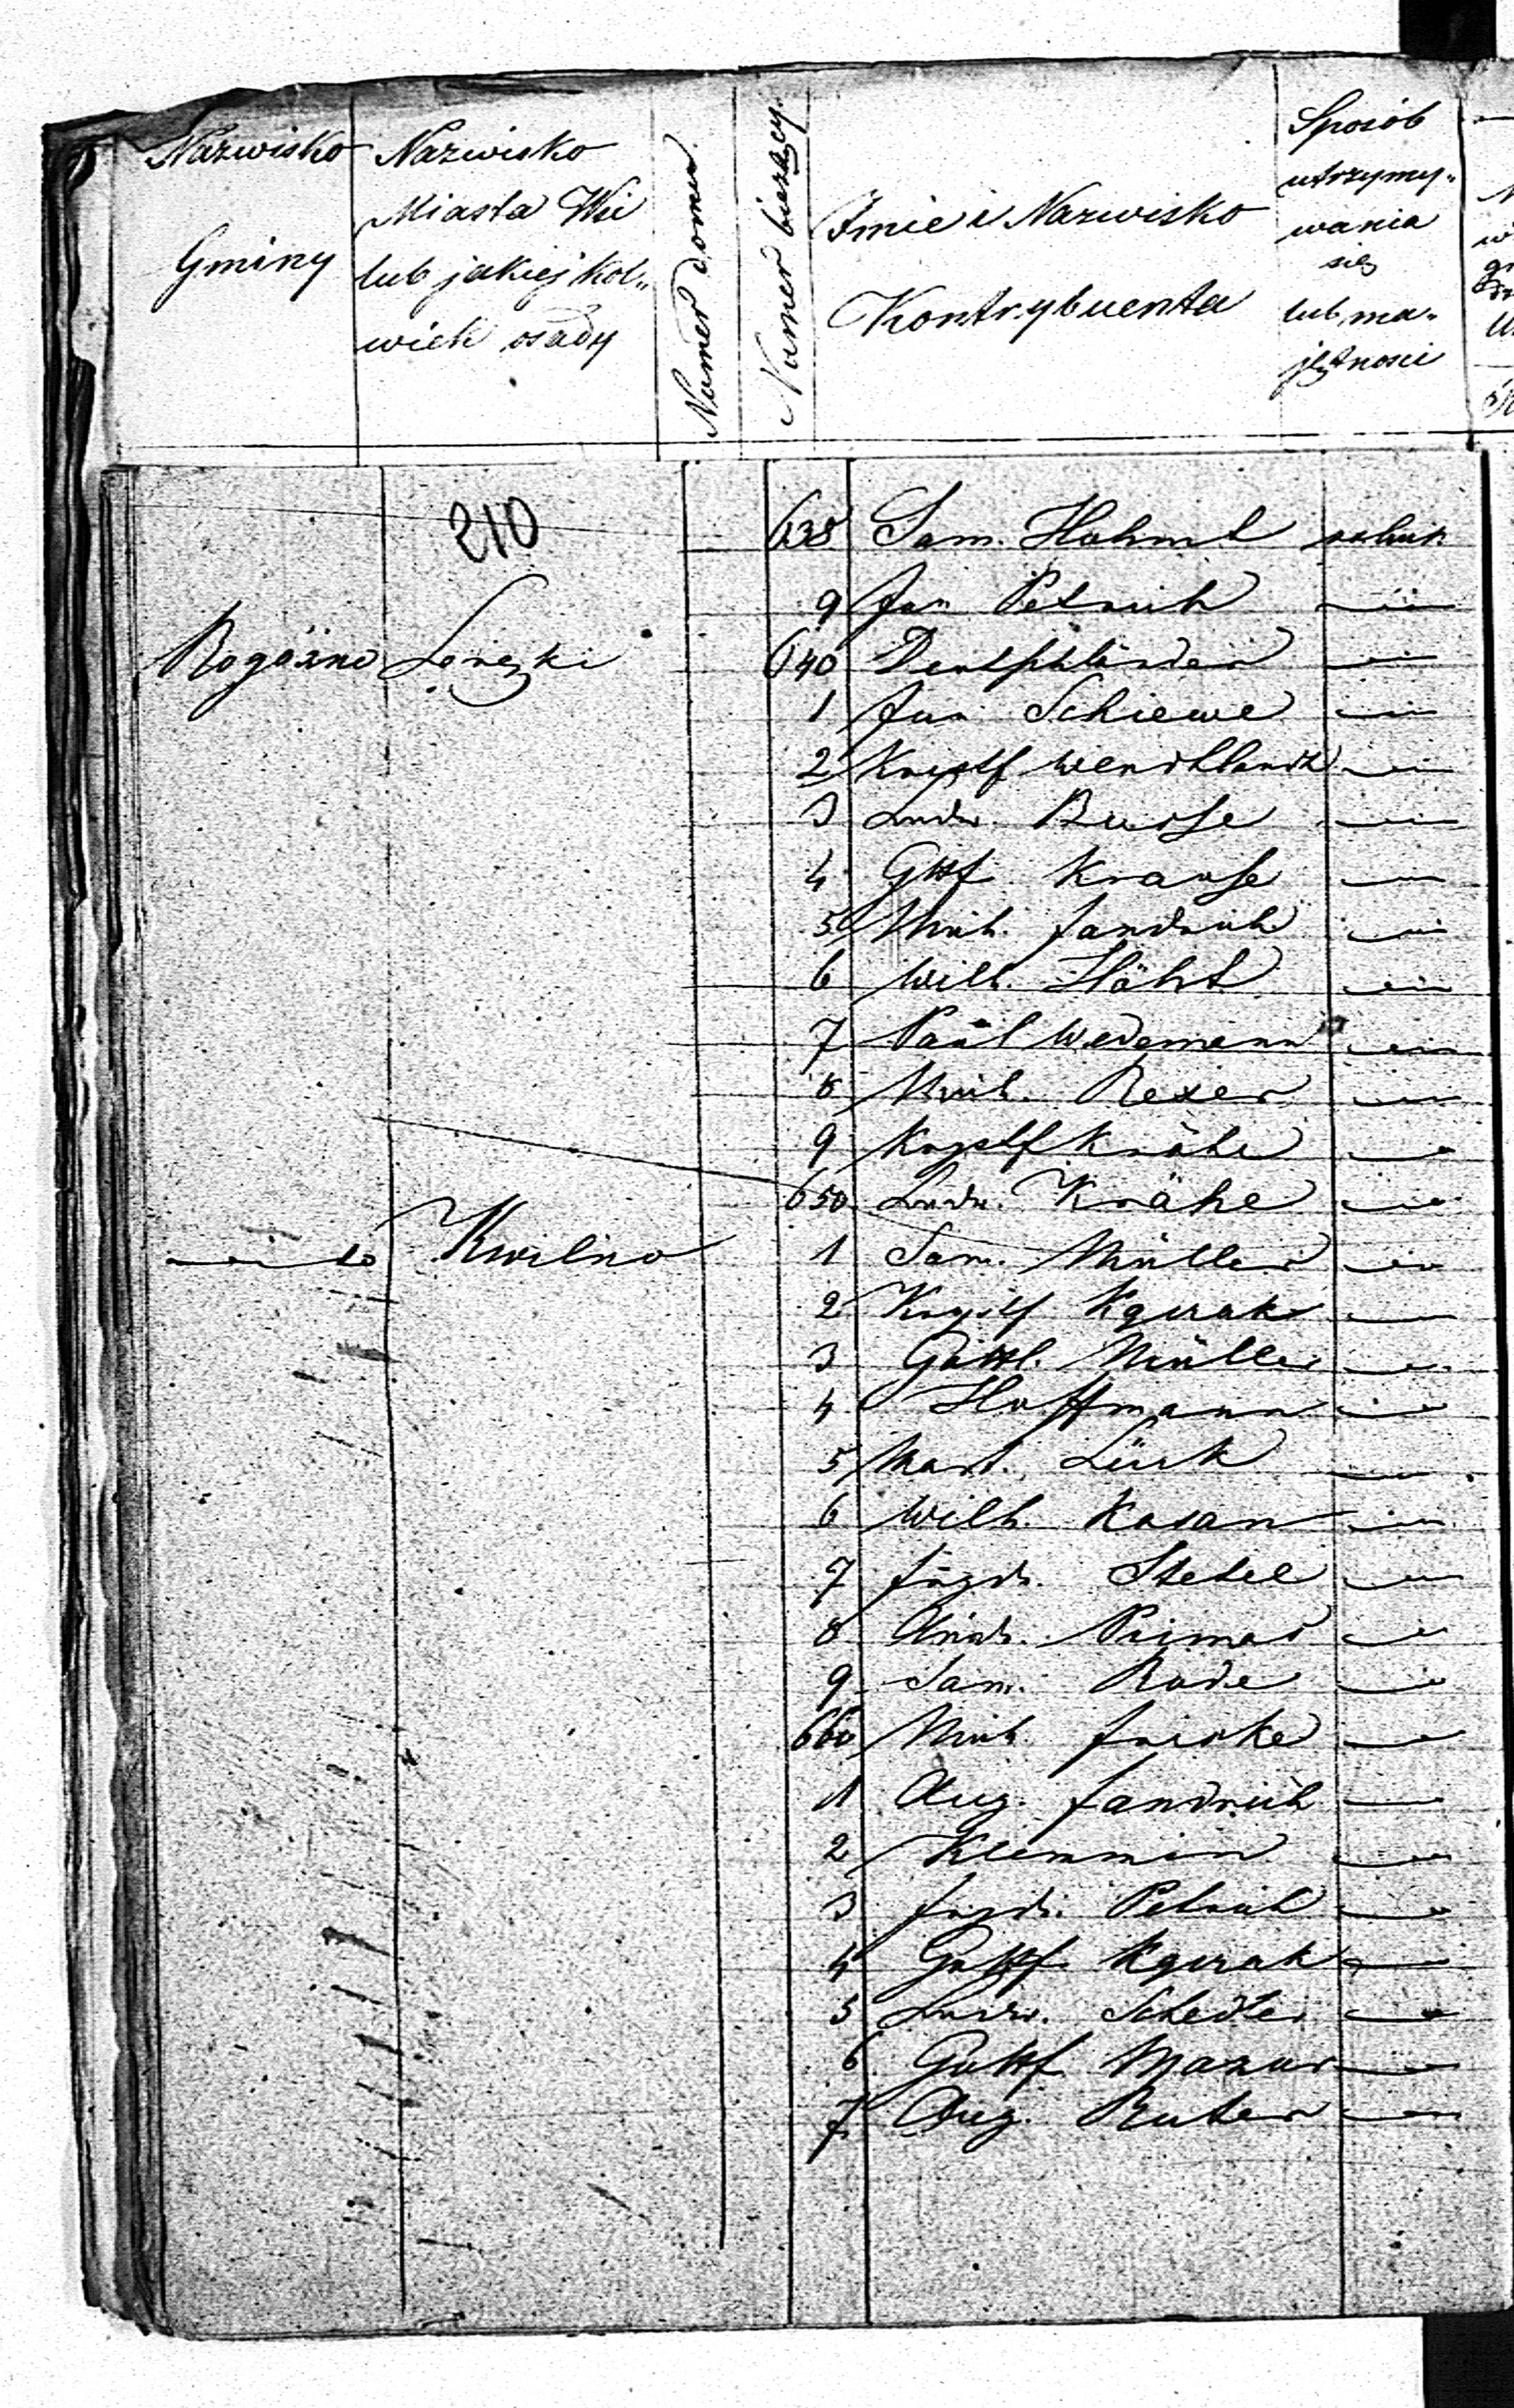 Nazwisko Gminy
Nazwisko Miasta Wsi lub jakiej kol„ wiek osady
Numer domu
Numer bieżący
Imie i Nazwisko Kontrybuenta
Sposób utrzymy„ wania się lub ma„ jętności
210
638 Sam. Hohml
9 Jan Petrich
Rogóżno 640
1 Jan Schiewe
2 Krystf Wendtlandt
3 Ludw. Busse
4 Gttf. Krause
5 Mich. Jandrich
6 Wilh. Höhl
7 Paul Wedemann
8 Mich. Rexer
9 Krystf Krähe
650 Ludw. Krähe
Kwilno 1 Sam. Müller
2 Krystf Kgurak
3 Gottl. Müller
4 Hoffmann
5 Mart. Lück
6 Wilh. Kasan
7 Frydr. Stetel
8 Andr. Primas
9 Sam. Rode
660 Mich. Friske
1 Aug. Jandrich
2 Klemmin
3 Frydr. Petrich
4 Gottf. Kgurak
5 Ludw. Schedler
6 Gottf. Mazur
7 Aug. Ruter